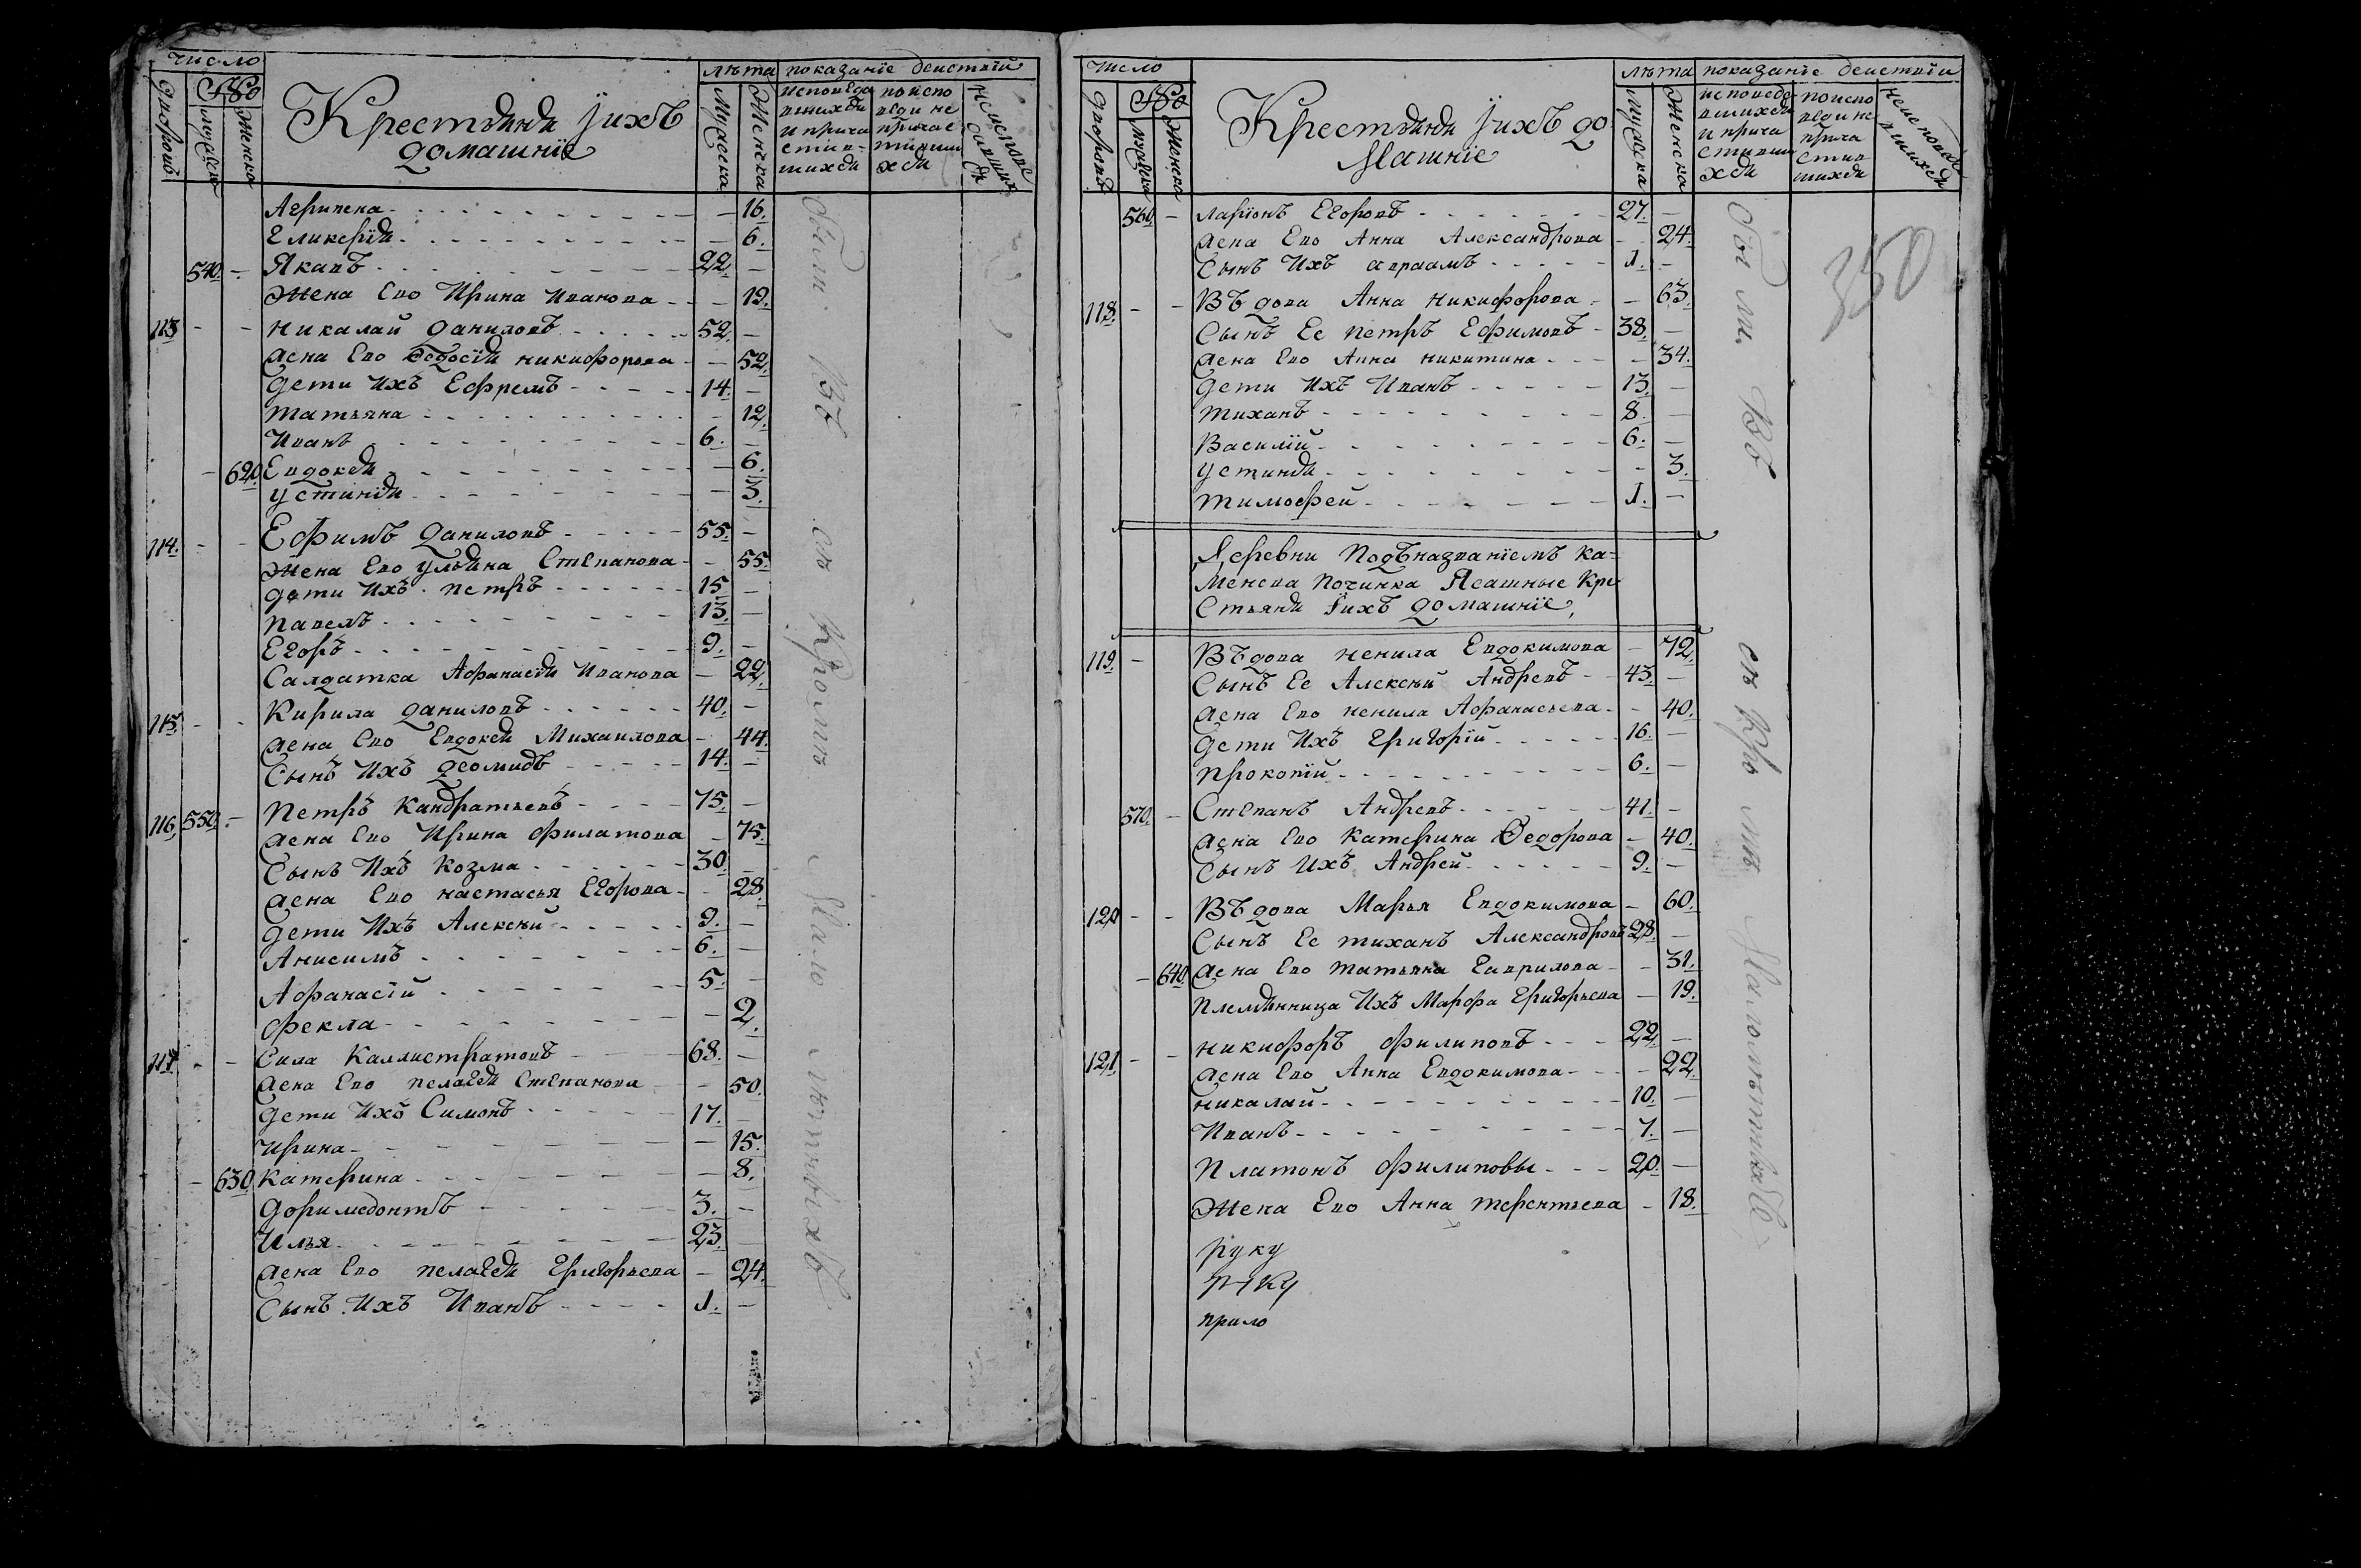 число
лѣта показанiе деиствiй
дворовъ
мужеска
женска
Крестьяня Їихъ
домашнiе
Мужеска
Женска
исповеда
вшихся
и прича
стив-
шихся
поиспо
веди не
причас
тивши
хся
Агрипена 16.
Гликерiя 6.
540. Якавъ 22.
Жена Ево Ирина Иванова 19.
113 Никалаи Даниловъ 52.
Жена Ево Ѳедосiя никифорова 52.
Дети Ихъ Ефремъ 14.
Татьяна 12.
Иванъ 6.
620 Евдокея 6.
Устинiя 3.
114. Ефимъ Даниловъ 55.
Жена Ево Ульяна Степанова 55.
Дети Ихъ Петръ 15
Павелъ 13.
Егоръ 9.
Салдатка Афанасiя Иванова 22.
115. Кирила Даниловъ 40.
Жена Ево Евдокея Михаилова 44.
Сынъ Ихъ Деомидъ 14.
116 550. Петръ Кандратьевъ 75.
Жена Ево Ирина Филатова 75.
Сынъ Ихъ Козма 30.
Жена Ево настасья Егорова 28
Дети Ихъ Алексѣй 9.
Анисимъ 6.
Афанасiй 5.
Фекла 2.
117 Сила Каллистратовъ 68.
Жена Ево пелагея Степанова 50.
Дети Ихъ Симонъ 17.
Ирина 15.
630 Катерина 8.
Доримедонтъ 3.
Илья 23.
Жена Ево пелагея Григорьева 24.
Сынъ Ихъ Иванъ 1.
Были Вѣ
съ Кромѣ Малолѣтныхъ
число
лѣта показанiе деиствiи
дворовъ
мужеска
женска
Крестьяня Їихъ до
Машнiе
Мужеска
Женска
исповеда
вшихся
и прича
стивши
хся
поиспо
веди не
прича
стив
шихся
неисповеда
вшихся
560. Ларiонъ Егоровъ 27.
Жена Ево Анна Александрова 24.
Сынъ Ихъ Авраамъ 1.
118. Въдова Анна Никифорова 63.
Сынъ Ее Петръ Ефимовъ 38.
Жена Ево Анна никитина 34.
Дети Ихъ Иванъ 13.
Тиханъ 8.
Василiй 6.
Устиня 3.
Тимофеи 1.
Деревни Подъназванiемъ Ка-
менева Починка Ясашные Кре
Стьяня Їихъ домашнiе,
119. Въдова ненила Евдокимова 72.
Сынъ Ее Алексѣй Андревъ 43.
Жена Ево ненила Афанасьева 40.
Дети Ихъ Григорiй 16.
Прокопiй 6.
570. Степанъ Андревъ 41.
Жена Ево Катерина Ѳедорова 40.
Сынъ Ихъ Андрей 9.
120 Въдова Марья Евдокимова 60.
Сынъ Ее тиханъ Александровъ 28.
640 Жена Ево татьяна Гаврилова 31.
Племянница Ихъ Марфа Григорьева 19.
121 никифоръ Филиповъ 22.
Жена Ево Анна Евдокимова 22.
Никалаи 10.
Иванъ 7.
Платонъ Филиповы 20.
Жена Ево Анна терентьева 18.
руку
прило
Были Вѣ
съ Кромѣ Малолѣтныхъ
350